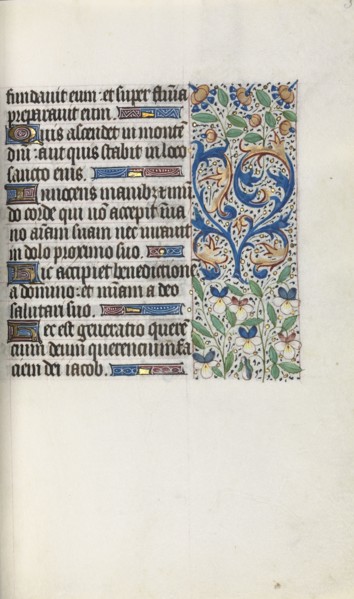 fundauit eum: et super flu͞ia
preparauit eum.
Quis ascendet in monte͞
dn͞i: aut quis stabit in loco
sancto eius.
Innocens manib; et mu͞
do corde qui no͞ accepit i͞ ua
no ai͞am suam nec iurauit
in dolo proximo suo.
Hic accipiet benedictione
a domino: et mi͞am a deo
salutari suo.
Hec est generatio quere͞
cium deum querencium fa
ciem dei iacob.